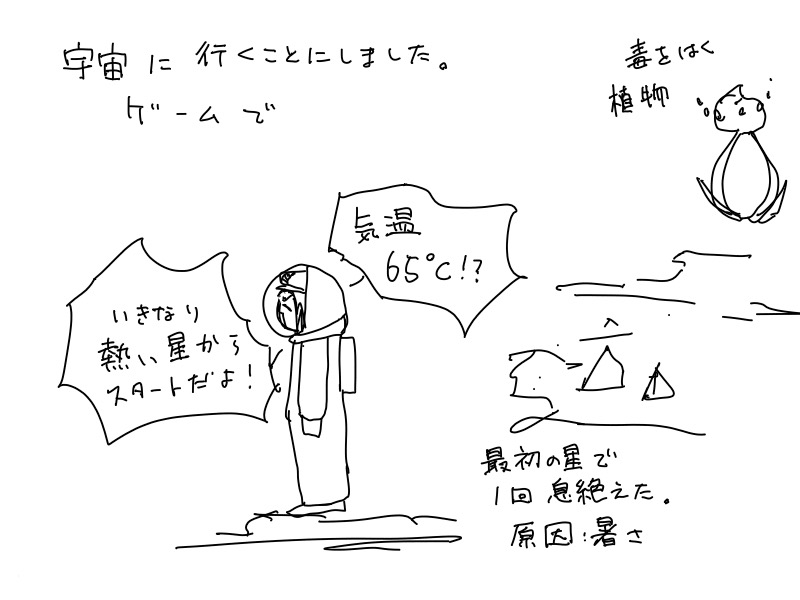 宇宙に行くことにしました。
ゲームで
毒をはく
植物
気温
65℃!?
いきなり
熱い星から
スタートだよ!
最初の星で
1回息絶えた。
原因:暑さ